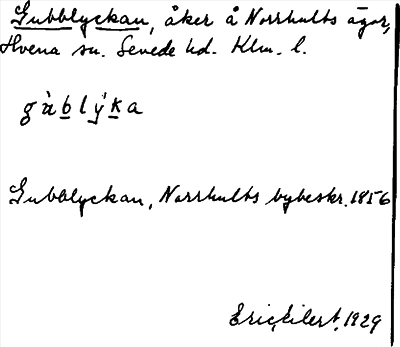 Gubblyckan, åker å Norrhults ägor,
Hvena sn. Sevede hd. Klm. l.
gàblýka
Gubblyckan, Norrhults bybeskr. 1856
Eric Eilert, 1929